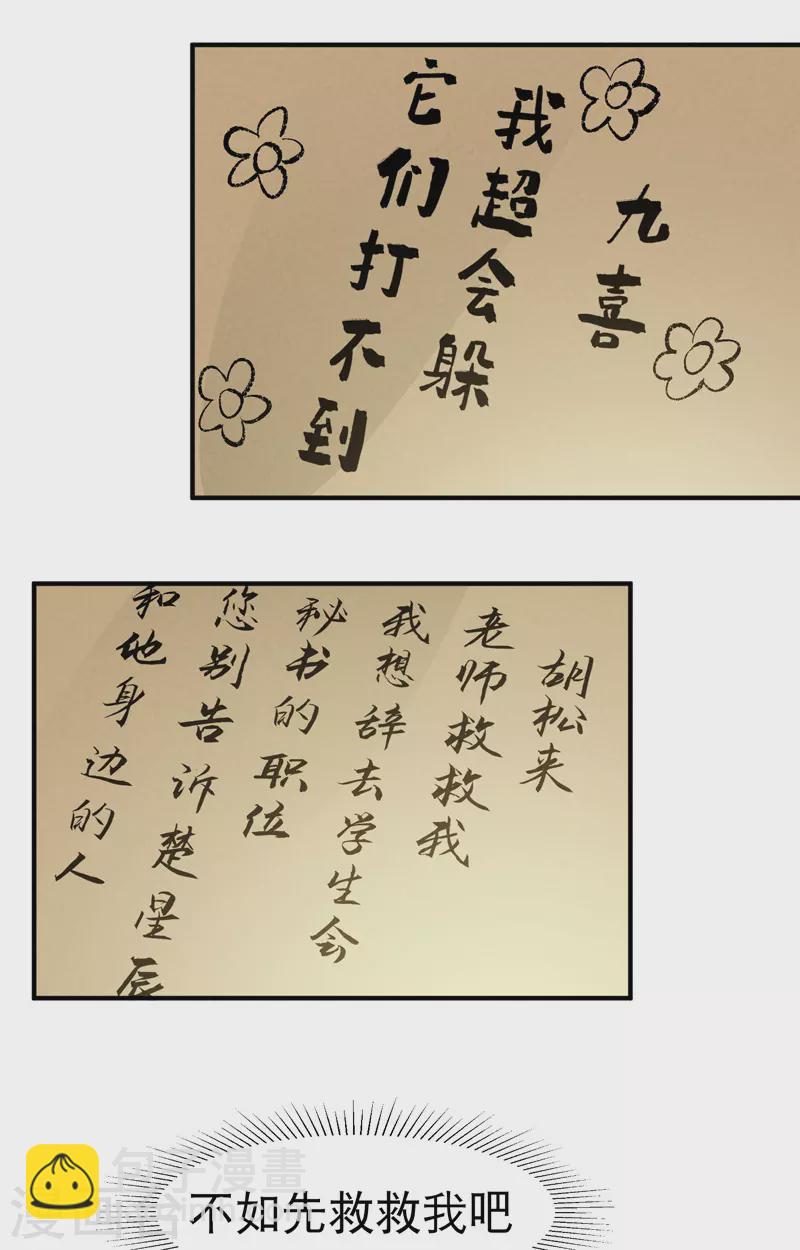 九喜
我超会躲
它们打不到
胡松夹
老师救救我
我想辞去学生会
秘书的职位
您别告诉楚星辰
和他身边的人
不如先救救我吧